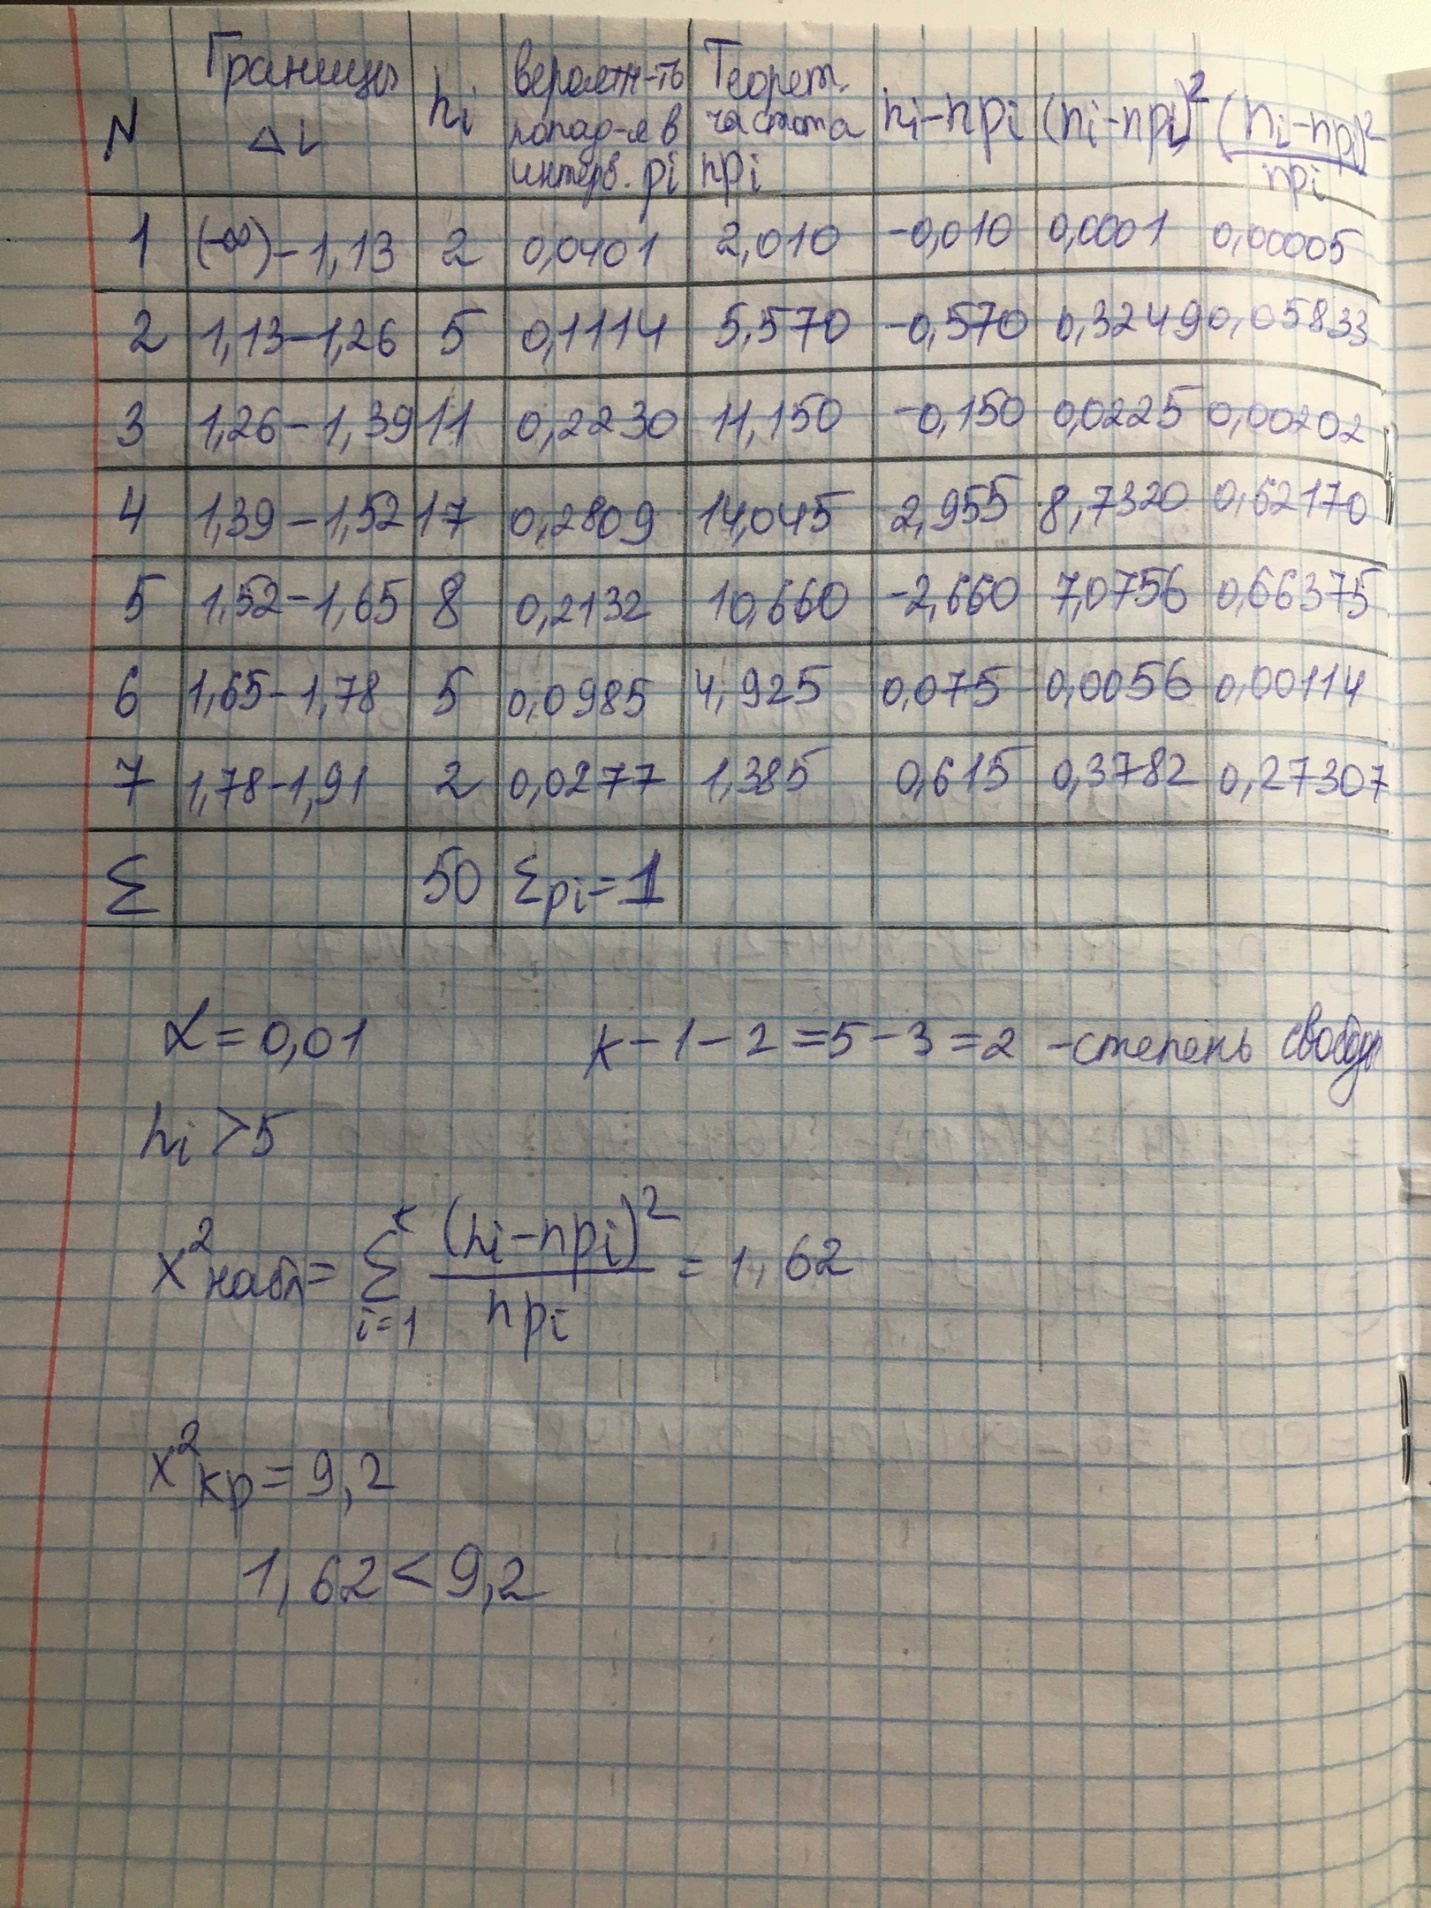 N Границы Δi ni вероятн-ть попад-я в интерв. pi Теорет. частота npi ni-npi (ni-npi)² (ni-npi)²/npi
1 (-∞)-1,13 2 0,0401 2,010 -0,010 0,0001 0,00005
2 1,13-1,26 5 0,1114 5,570 -0,570 0,3249 0,05833
3 1,26-1,39 11 0,2230 11,150 -0,150 0,0225 0,00202
4 1,39-1,52 17 0,2809 14,045 2,955 8,7320 0,62170
5 1,52-1,65 8 0,2132 10,660 -2,660 7,0756 0,66375
6 1,65-1,78 5 0,0985 4,925 0,075 0,0056 0,00114
7 1,78-1,91 2 0,0277 1,385 0,615 0,3782 0,27307
Σ 50 Σpi=1
α=0,01 k-1-2=5-3=2 -степень свободы
ni>5
x²набл= Σ k i=1 (ni-npi)²/npi = 1,62
x²кр=9,2
1,62<9,2